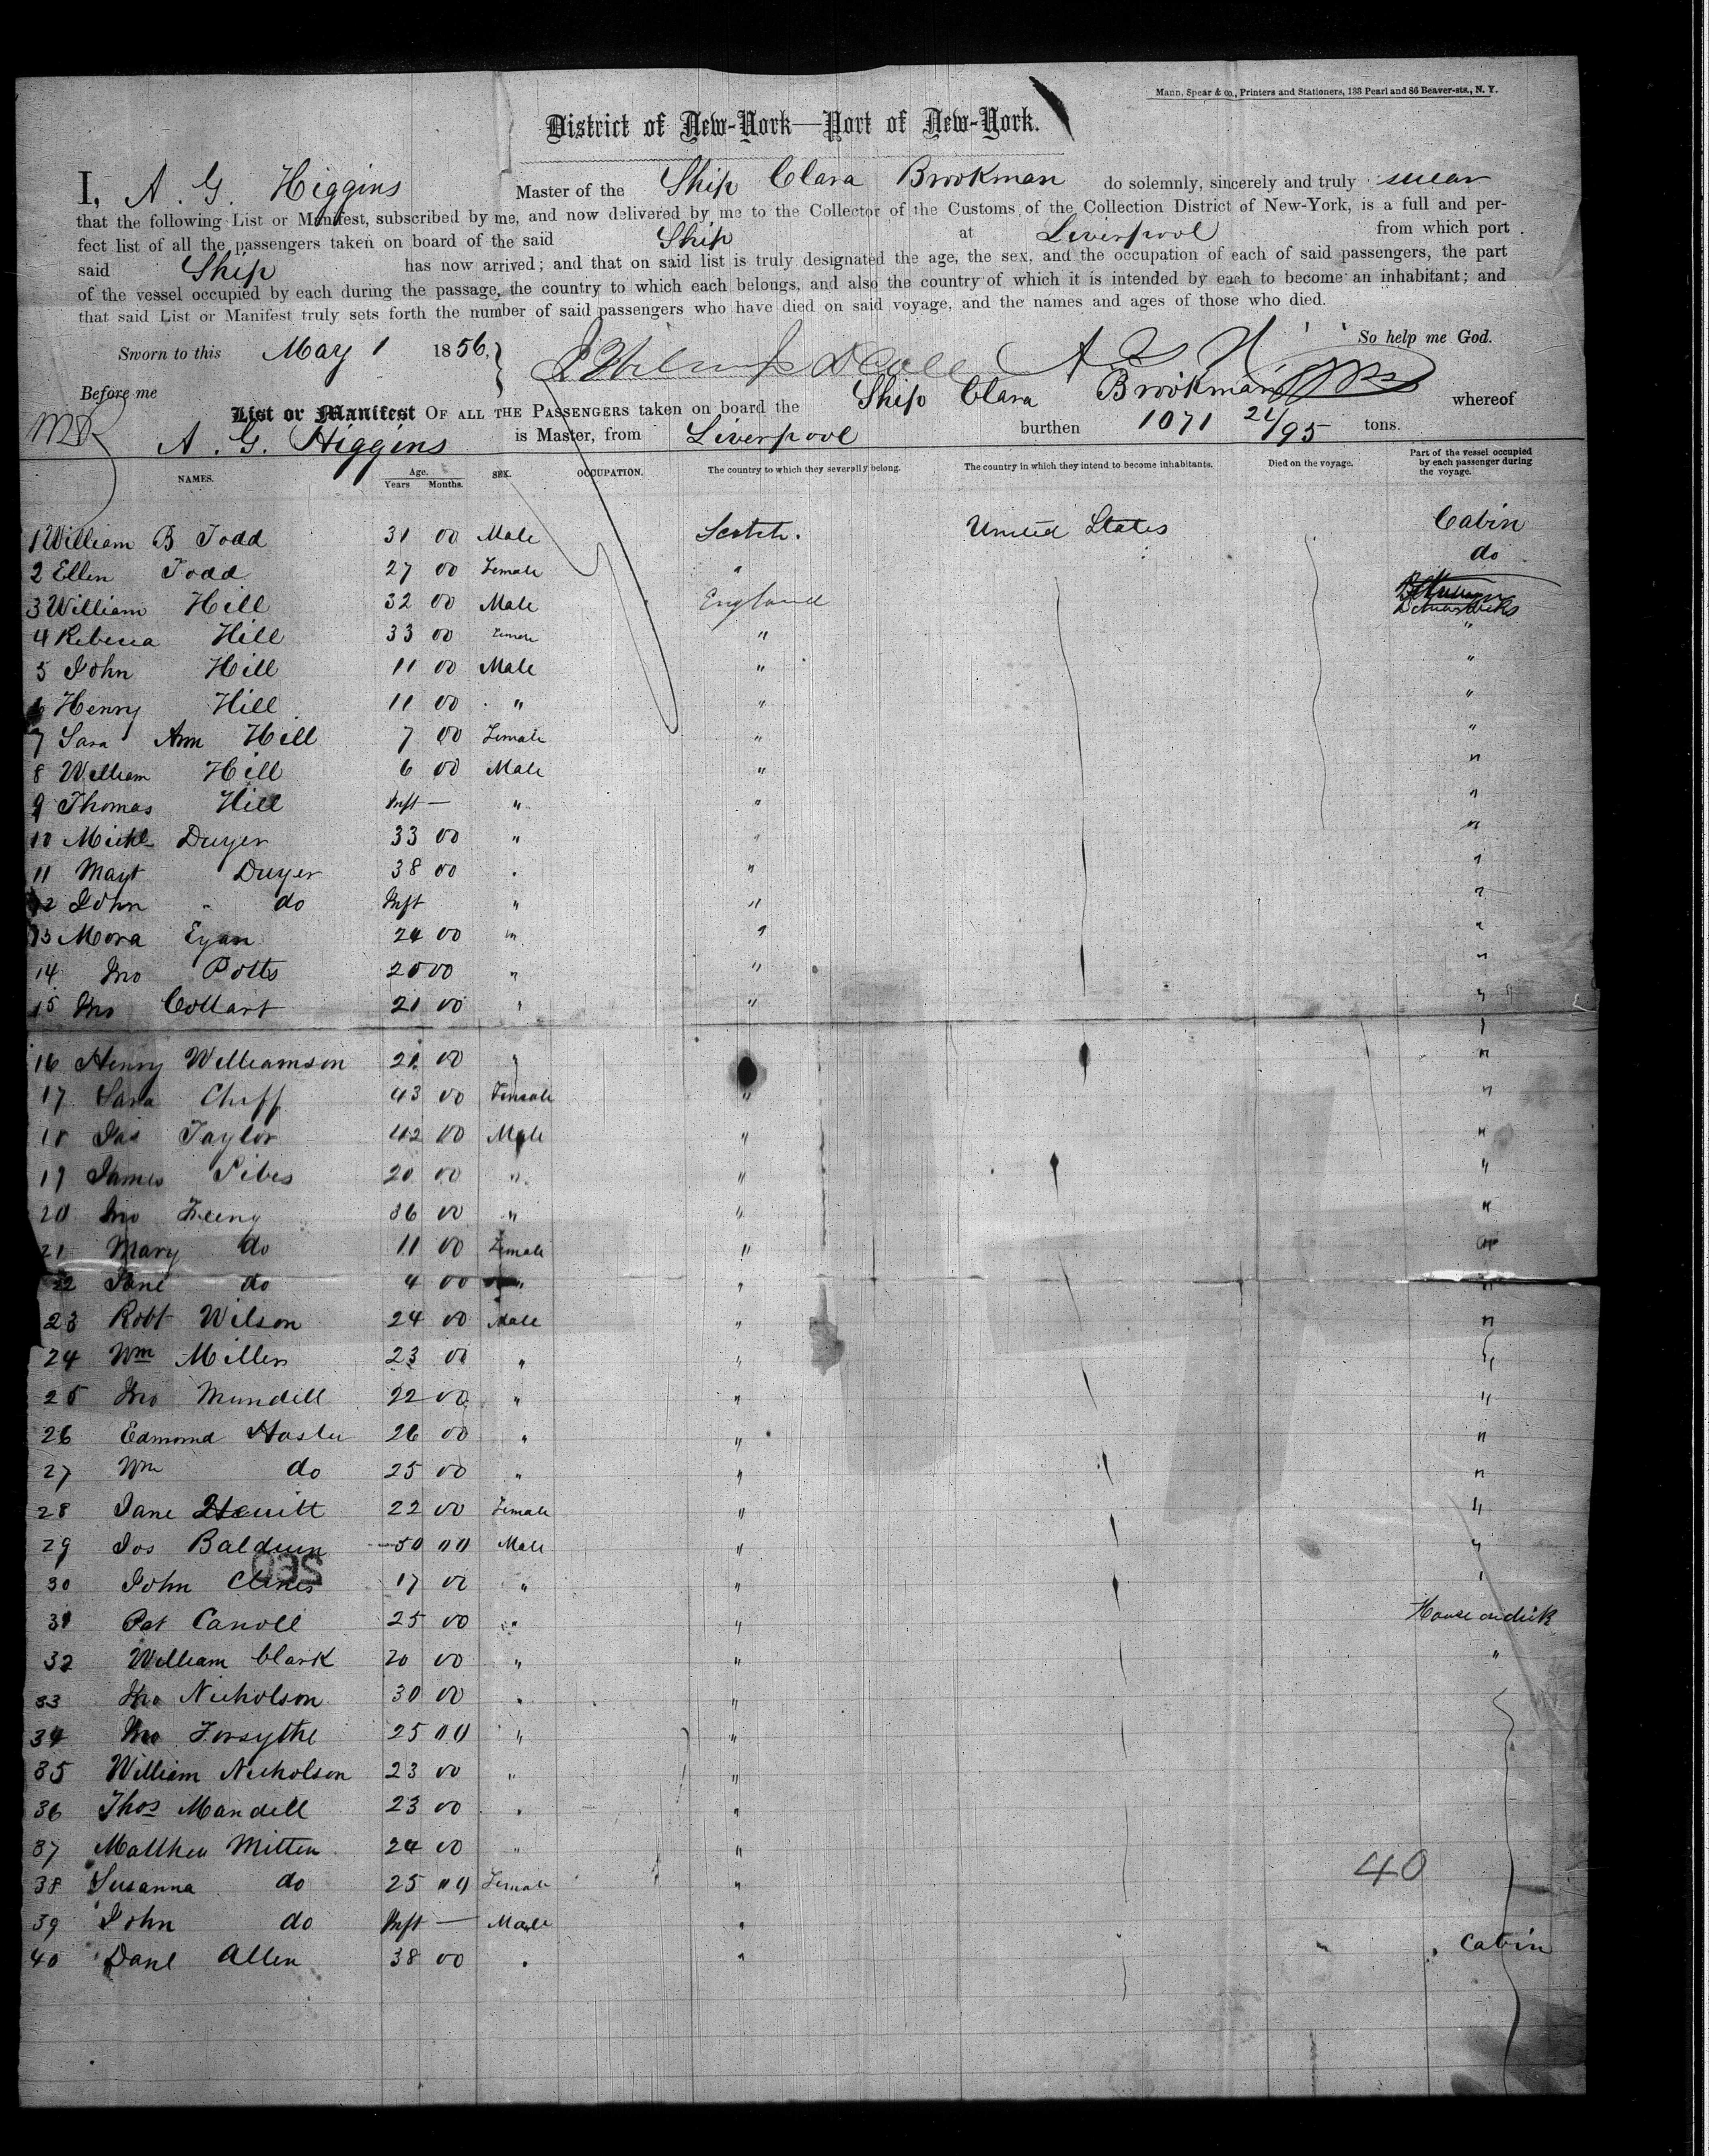 Mann, Spear & Co., Printers and Stationers, 133 Pearl and 86 Beaver-sts., N. Y.
District of New-York—Port of New-York.
I, A. G. Higgins Master of the Ship Clara Brookman do solemnly, sincerely and truly swear
that the following List or Manifest, subscribed by me, and now delivered by me to the Collector of the Customs of the Collection District of New-York, is a full and per-
fect list of all the passengers taken on board of the said Ship at Liverpool from which port
said Ship has now arrived; and that on said list is truly designated the age, the sex, and the occupation of each of said passengers, the part
of the vessel occupied by each during the passage, the country to which each belongs, and also the country of which it is intended by each to become an inhabitant; and
that said List or Manifest truly sets forth the number of said passengers who have died on said voyage, and the names and ages of those who died.
So help me God.
Sworn to this May 1 1856,
Before me
List or Manifest OF ALL THE PASSENGERS taken on board the Ship Clara Brookman whereof
A. G. Higgins is Master, from Liverpool burthen 1071 21/95 tons.
NAMES. Age. Years Months. SEX. OCCUPATION. The country to which they severally belong. The country in which they intend to become inhabitants. Died on the voyage. Part of the vessel occupied by each passenger during the voyage.
1 William B Todd 31 00 Male Scotch. United States Cabin
2 Ellen Todd 27 00 Female " do
3 William Hill 32 00 Male England
4 Rebecca Hill 33 00 Female " "
5 John Hill 11 00 Male " "
6 Henry Hill 11 00 " " "
7 Sara Ann Hill 7 00 Female " "
8 William Hill 6 00 Male " "
9 Thomas Hill Inft — " " "
10 Michl Dwyer 33 00 " " "
11 Magt Dwyer 38 00 " " "
12 John do Inft " " "
13 Mora Egan 24 00 " " "
14 Jno Potts 20 00 " " "
15 Jno Collart 21 00 " " "
16 Henry Williamson 21 00 " "
17 Sara Cluff 43 00 Female " "
18 Jas Taylor 42 00 Male " "
19 James 20 00 " " "
20 Jno Feeny 36 00 " " "
21 Mary do 11 00 Female "
22 Jane do 4 00 " " "
23 Robt Wilson 24 00 Male " "
24 Wm Millen 23 00 " " "
25 Jno Mundell 22 00 " " "
26 Edmond 26 00 " " "
27 Wm do 25 00 " " "
28 Jane Hewitt 22 00 Female " "
29 Jos Baldwin 50 00 Male " "
30 John Clines 17 00 " " "
31 Pat Carroll 25 00 " " House on deck
32 William Clark 20 00 " " "
33 Jno Nicholson 30 00 " "
34 Jno Forsythe 25 00 " "
35 William Nicholson 23 00 " "
36 Thos Mandell 23 00 " "
37 Matthew Mitten 24 00 " "
38 Susanna do 25 00 Female "
40
39 John do Inft — Male "
40 Danl Allen 38 00 " " Cabin